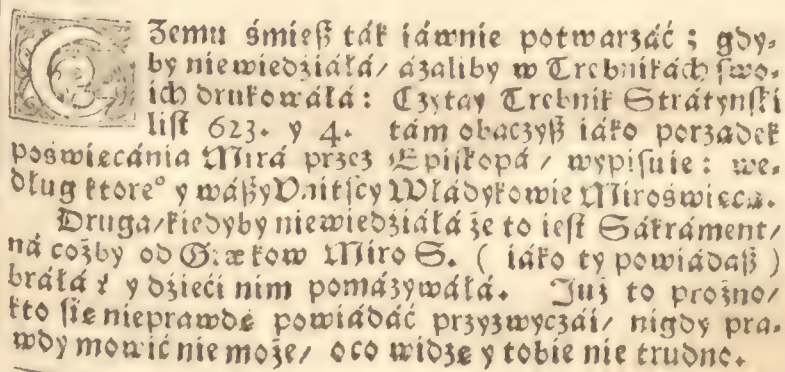 CZemu śmiesz ták iáwnie potwarzáć ; gdy-
by niewiedziáłá/ ázaliby w Trebnikách swo-
ich drukowáłá : Czytay Trebnik Strátynski
list 623. y 4. tám obaczysz iáko porządek
poświecánia Mirá przez Episkopá / wypisuie : we-
dług ktore° y wászy Vnitscy Władykowie Miro święcą.
Druga/ kiedyby niewiedziáłá że to iest Sákráment/
ná cożby od Græków Miro S. ( iáko ty powiádasz )
bráłá ? y dzieci nim pomázywáłá. Już to prożno/
kto się nieprawdę powiádáć przyzwyczái/ nigdy pra-
wdy mowić nie może/ o co widzę y tobie nie trudno.